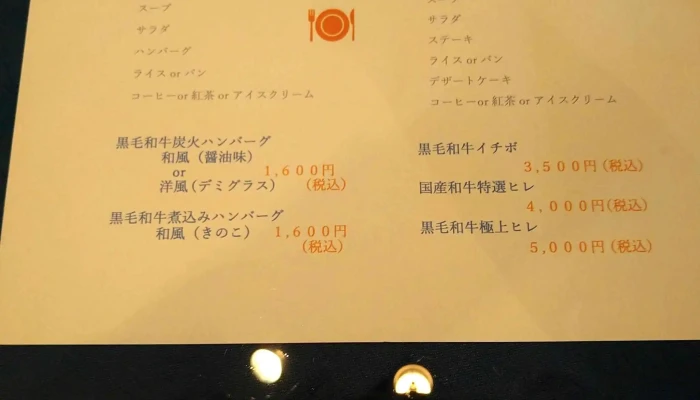 スープ
サラダ
ハンバーグ
ライス or パン
コーヒーor 紅茶 or アイスクリーム
黒毛和牛炭火ハンバーグ
和風（醤油味）
or
洋風(デミグラス)
1,600円
(税込)
黒毛和牛煮込みハンバーグ
和風（きのこ）
1,600円
(税込)
スープ
サラダ
ステーキ
ライス or パン
デザートケーキ
コーヒーor 紅茶 or アイスクリーム
黒毛和牛イチボ
3,500円(税込)
国産和牛特選ヒレ
4,000円(税込)
黒毛和牛極上ヒレ
5,000円(税込)